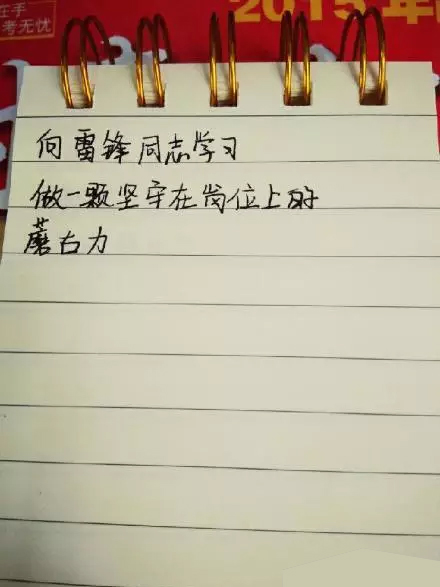 在手
考无忧
2015年
向雷锋同志学习
做一颗坚守在岗位上的
蘑古力